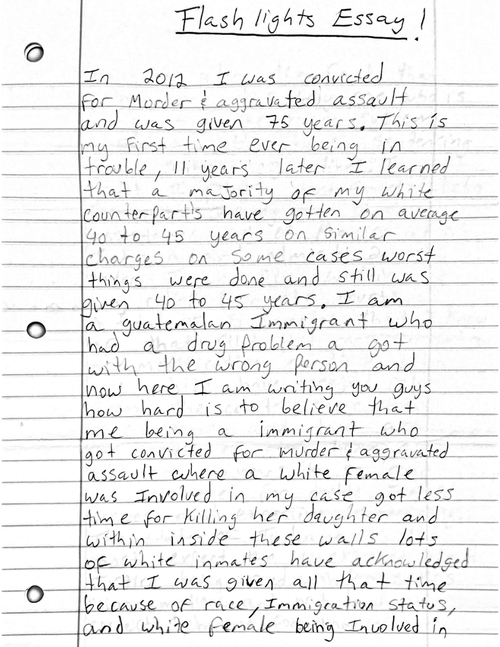 Flash lights Essay!
In 2012 I was convicted
for Morder & aggravated assault
and was given 75 years. This is
my First time ever being in
trouble, 11 years later I learned
that a majority of my white
counterpart's have gotten on average
40 to 45 years on similar
charges on some cases worst
things were done and still was
given 40 to 45 years. I am
a guatemalan Immigrant who
had a drug problem a got
with the wrong person and
now here I am writing you guys
how hard is to believe that
me being a immigrant who
got convicted for murder & aggravated
assault where a white female
was Involved in my case got less
time for killing her daughter and
within inside these walls lots
of white inmates have acknowledged
that I was given all that time
because of race, Immigration status,
and white female being Involved in